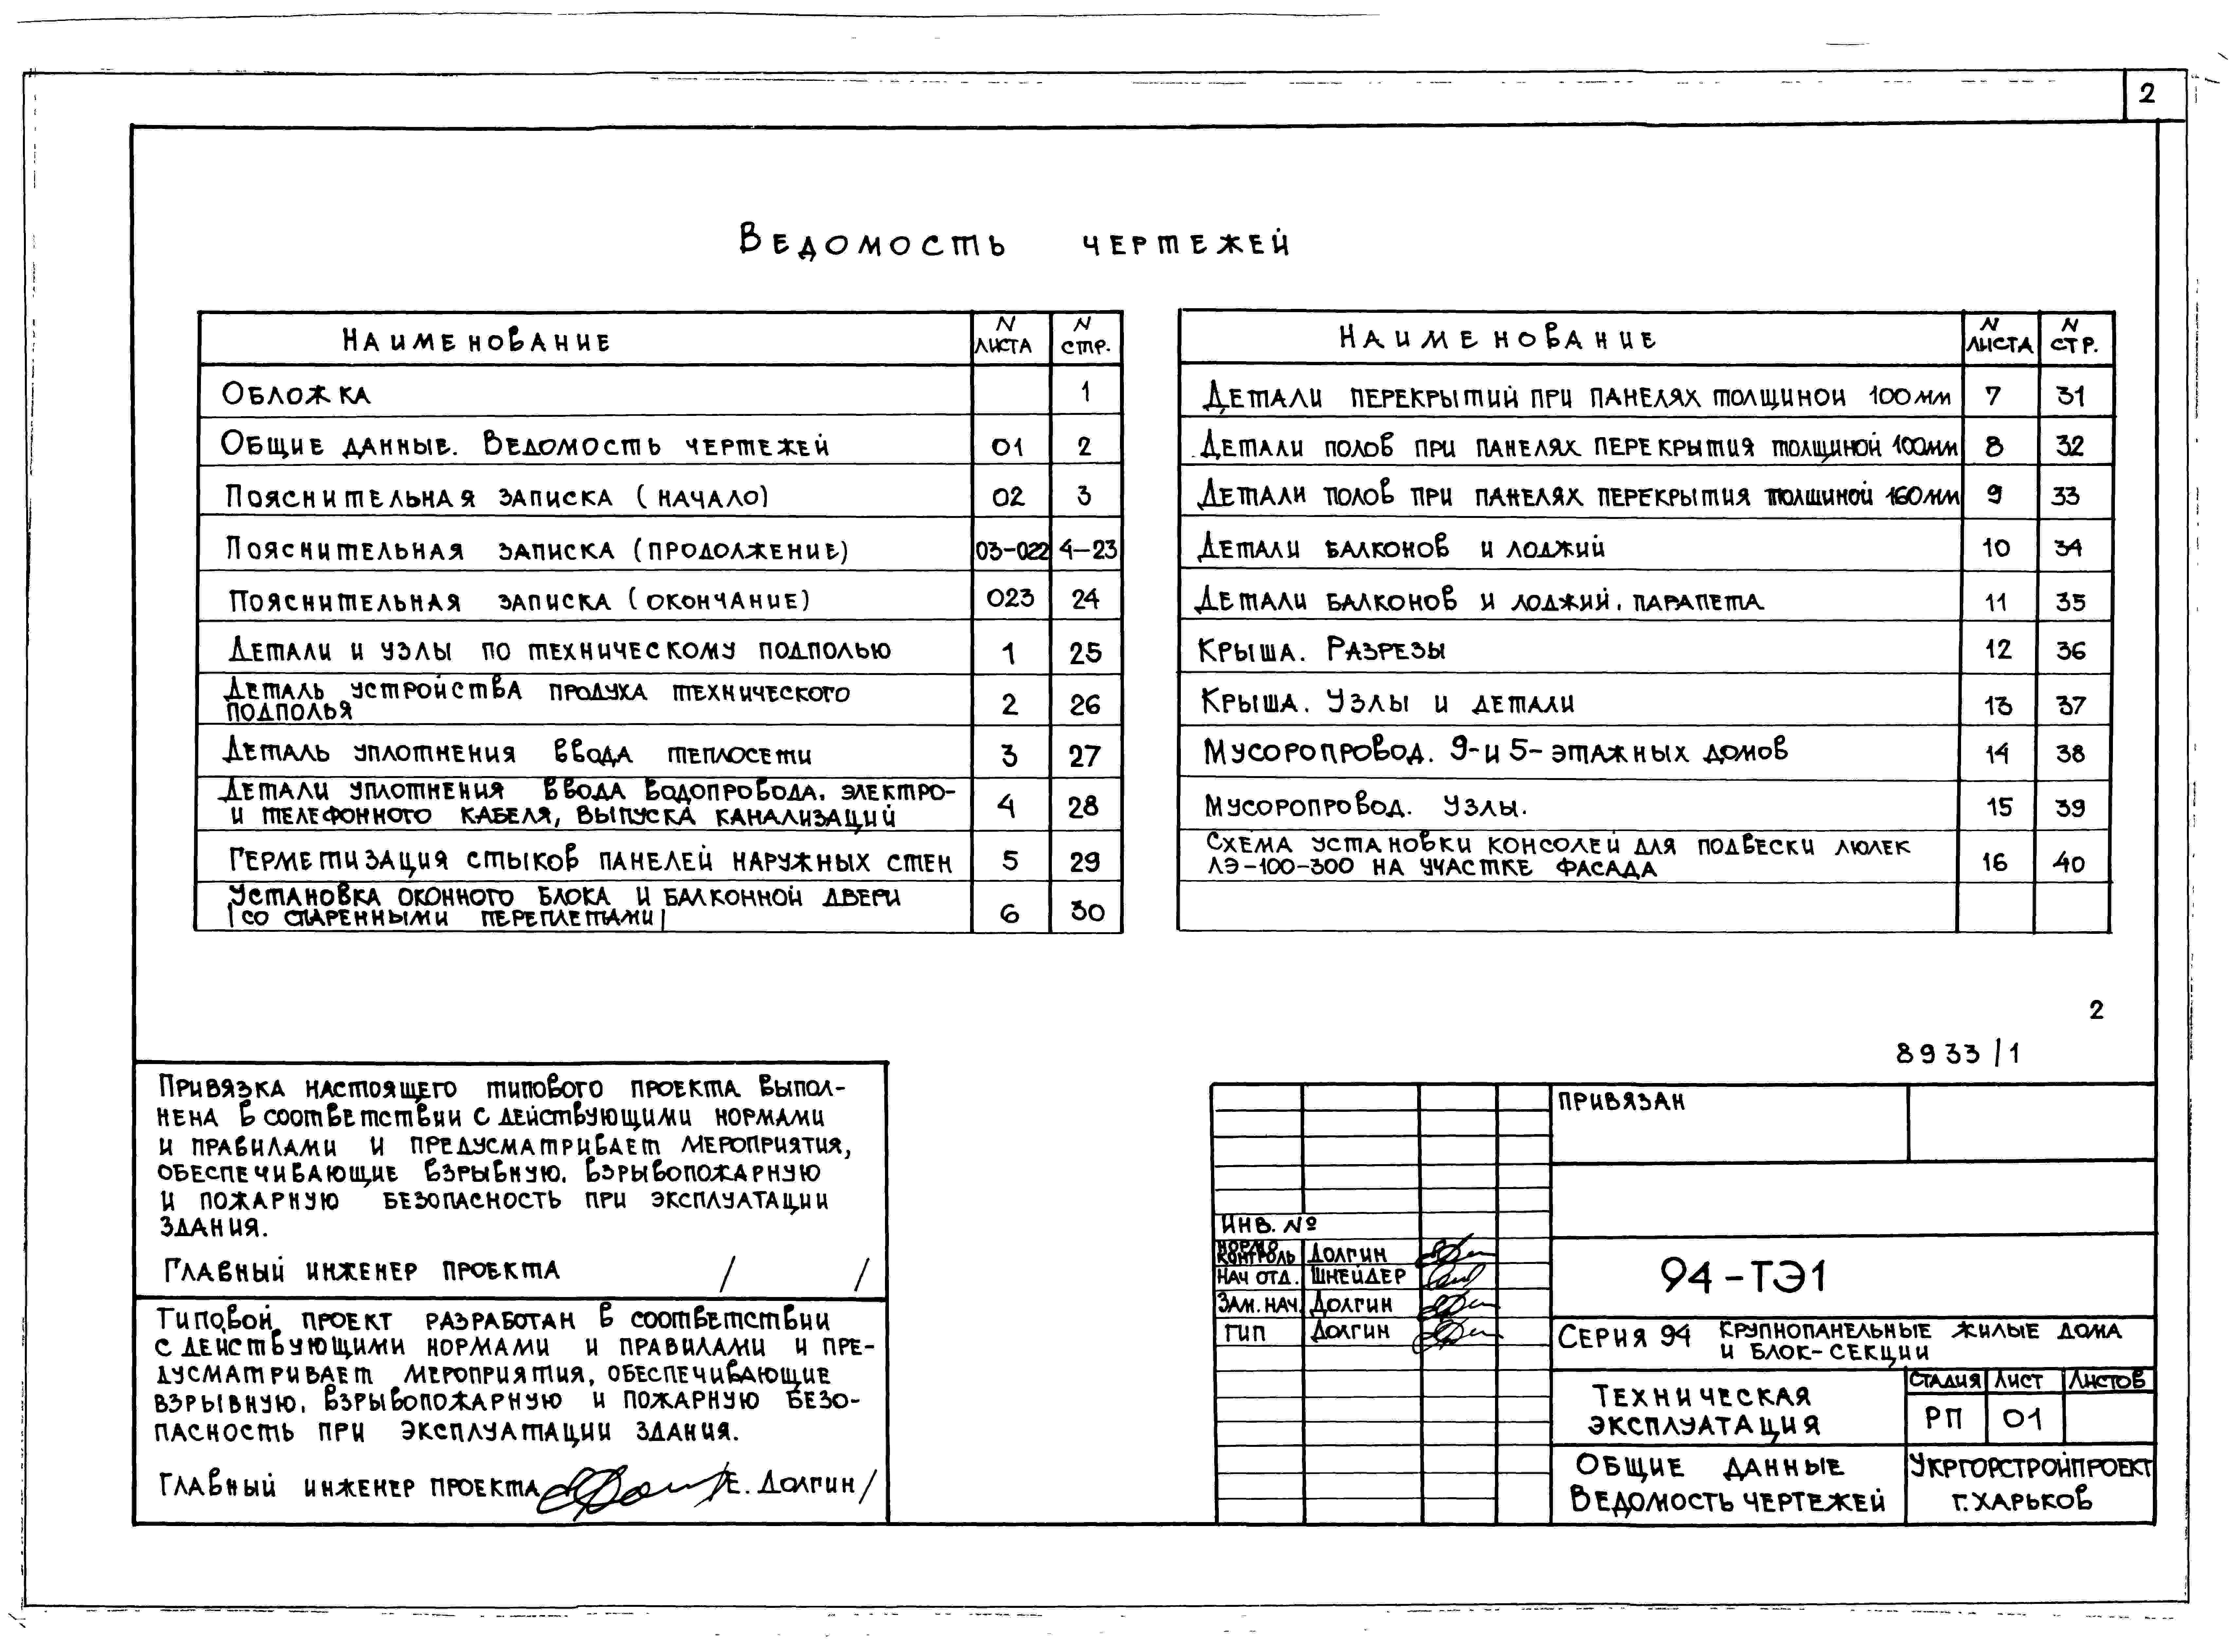 2
Ведомость чертежей
Наименование N листа N стр.
Обложка 1
Общие данные. Ведомость чертежей 01 2
Пояснительная записка (начало) 02 3
Пояснительная записка (продолжение) 03-022 4-23
Пояснительная записка (окончание) 023 24
Детали и узлы по техническому подполью 1 25
Деталь устройства продуха технического
подполья 2 26
Деталь уплотнения ввода теплосети 3 27
Детали уплотнения ввода водопровода, электро-
и телефонного кабеля, выпуска канализаций 4 28
Герметизация стыков панелей наружных стен 5 29
Установка оконного блока и балконной двери
/со спаренными переплетами/ 6 30
Наименование N листа N стр.
Детали перекрытий при панелях толщиной 100мм 7 31
Детали полов при панелях перекрытия толщиной 100мм 8 32
Детали полов при панелях перекрытия толшиной 160мм 9 33
Детали балконов и лоджий 10 34
Детали балконов и лоджий, парапета 11 35
Крыша. Разрезы 12 36
Крыша. Узлы и детали 13 37
Мусоропровод. 9-и 5-этажных домов 14 38
Мусоропровод. Узлы. 15 39
Схема установки консолей для подвески люлек
ЛЭ-100-300 на участке фасада 16 40
2
8933/1
Привязка настоящего типового проекта выпол-
нена в соответствии с действующими нормами
и правилами и предусматривает мероприятия,
обеспечивающие взрывную, взрывопожарную
и пожарную безопасность при эксплуатации
здания.
Главный инженер проекта / /
Типовой проект разработан в соответствии
с действующими нормами и правилами и пре-
дусматривает мероприятия, обеспечивающие
взрывную, взрывопожарную и пожарную безо-
пасность при эксплуатации здания.
Главный инженер проекта /Е. Долгин/
Привязан
Инв. №
Нормо
контроль Долгин
Нач отд. Шнейдер
Зам. нач. Долгин
ГИП Долгин
94-ТЭ1
Серия 94 Крупнопанельные жилые дома
и блок-секции
Техническая
эксплуатация
Стадия Лист Листов
РП 01
Общие данные
Ведомость чертежей
Укргорстройпроект
г. Харьков